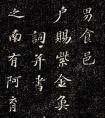 男食邑
户賜紫金魚
詞并書
之南有阿育